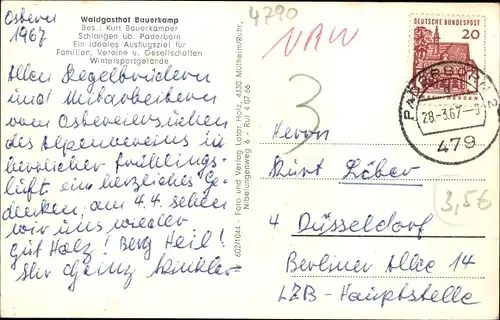 Ostern
1967
Waldgasthof Bauerkamp
Bes.: Kurt Bauerkämper
Schlangen üb. Paderborn
Ein ideales Ausflugsziel für
Familien, Vereine u. Gesellschaften
Wintersportgelände
Allen Kegelbrüdern
und Mitarbeitern
vom
des Alpenvereins in
herrlicher Frühlings-
luft ein herzliches Ge-
denken, am 4.4. sehen
wir uns wieder
Gut Holz! Berg Heil!
Ihr Heinz Winkler
602/1044 - Foto und Verlag Lothar Holtz, 4330 Mülheim/Ruhr,
Nibelungenweg 6 - Ruf 4 07 66
4790
NAW
3
DEUTSCHE BUNDESPOST
20
PADERBORN 2
28-3.67-
479
Herrn
Kurt Löber
4 Düsseldorf
Berliner Allee 14
LZB-Hauptstelle
3,5€